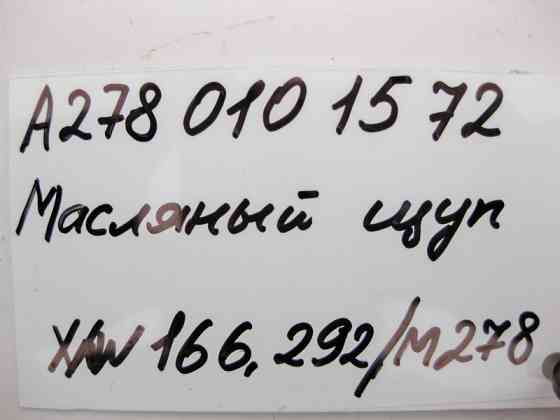 A278 010 15 72
Масляный щуп
166, 292/M278